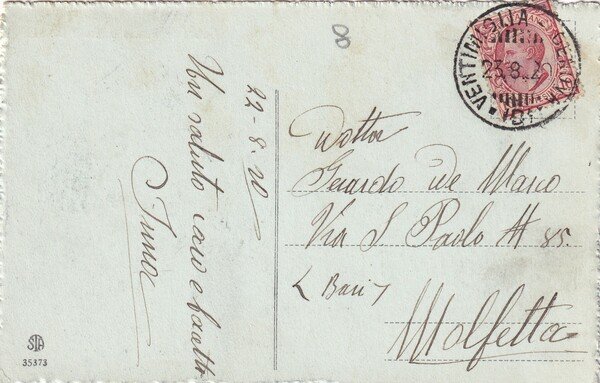 8
22-8.20
Un saluto caro e baatto
VENTIMIGLIA GENOVA
23.8.20
Dottor
Gerardo de Marco
Via S Paolo N 85.
(Bari)
Molfetta
STA
35373